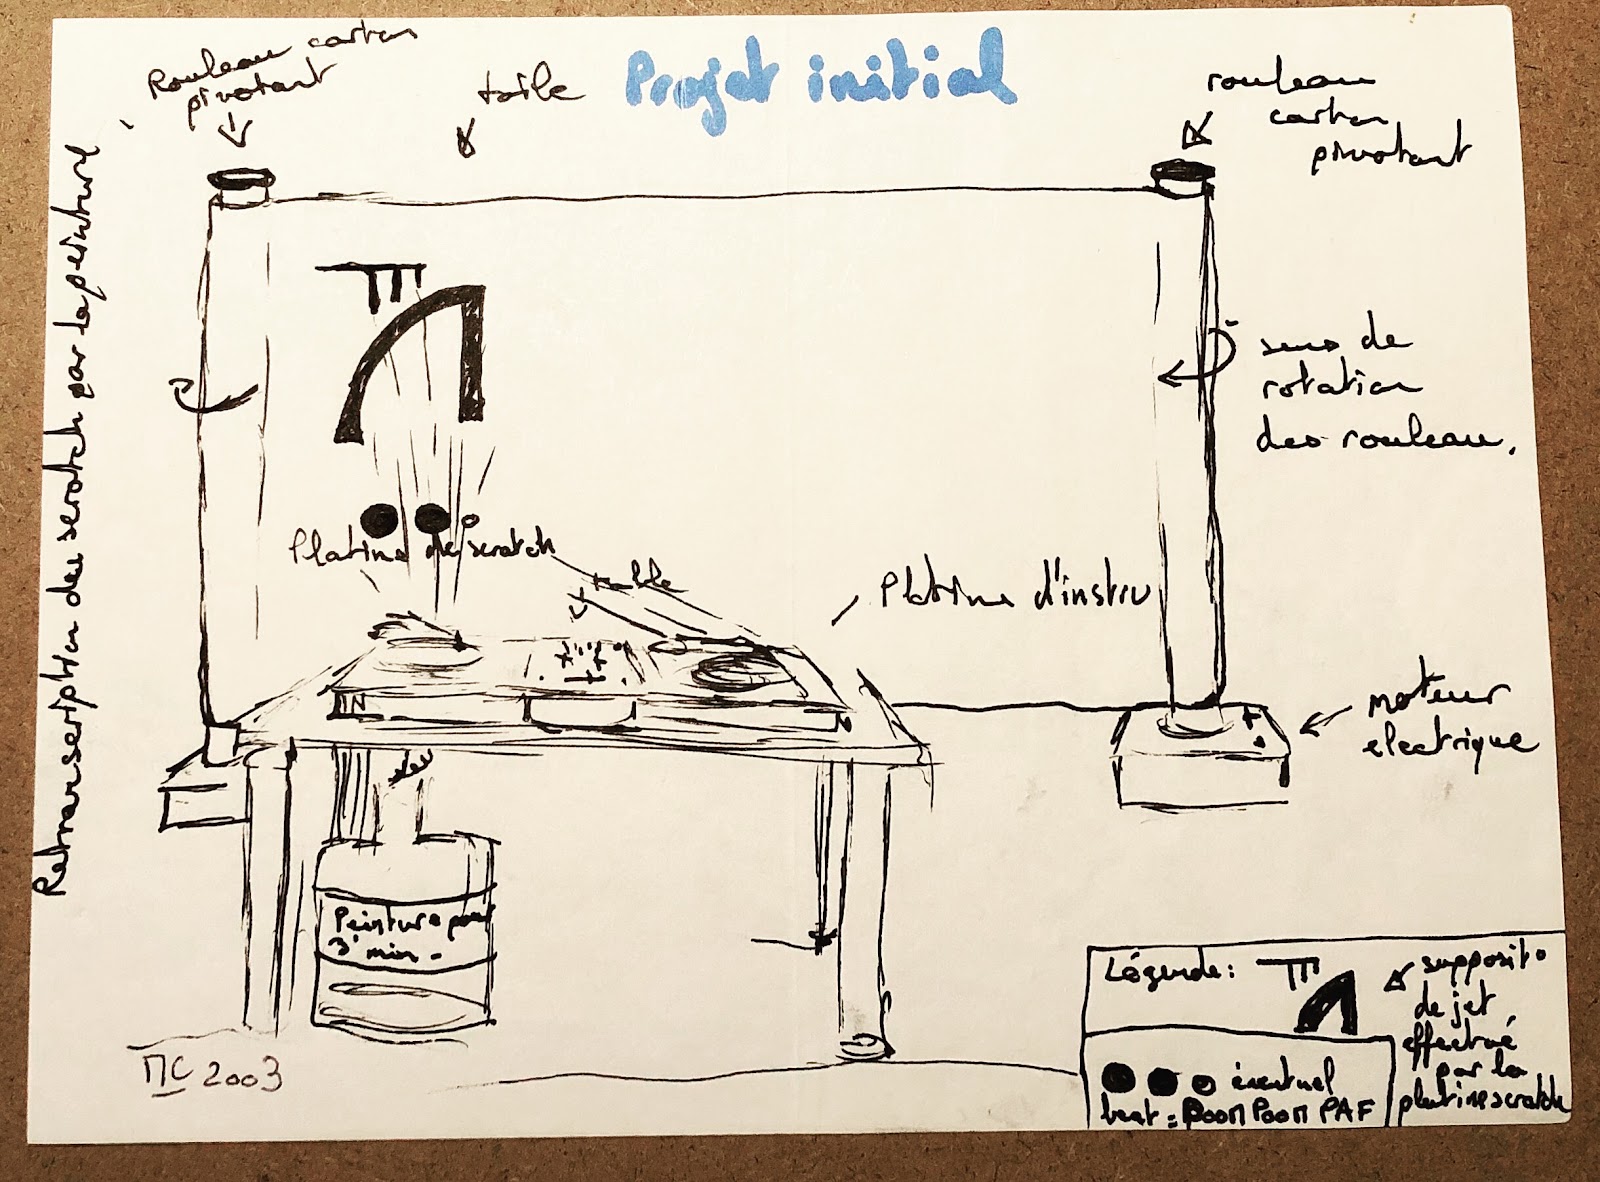 Projet initial
Rouleau carton
pivotant
toile
rouleau
carton
pivotant
Retranscription des scratch par la peinture
sens de
rotation
des rouleau.
Platine de scratch
table
Platine d'instru
moteur
electrique
Peinture pour
3 min -
MC 2003
Légende:
supposito
de jet
effectué
par la
platine scratch
éventuel
beat = POOM POOM PAF